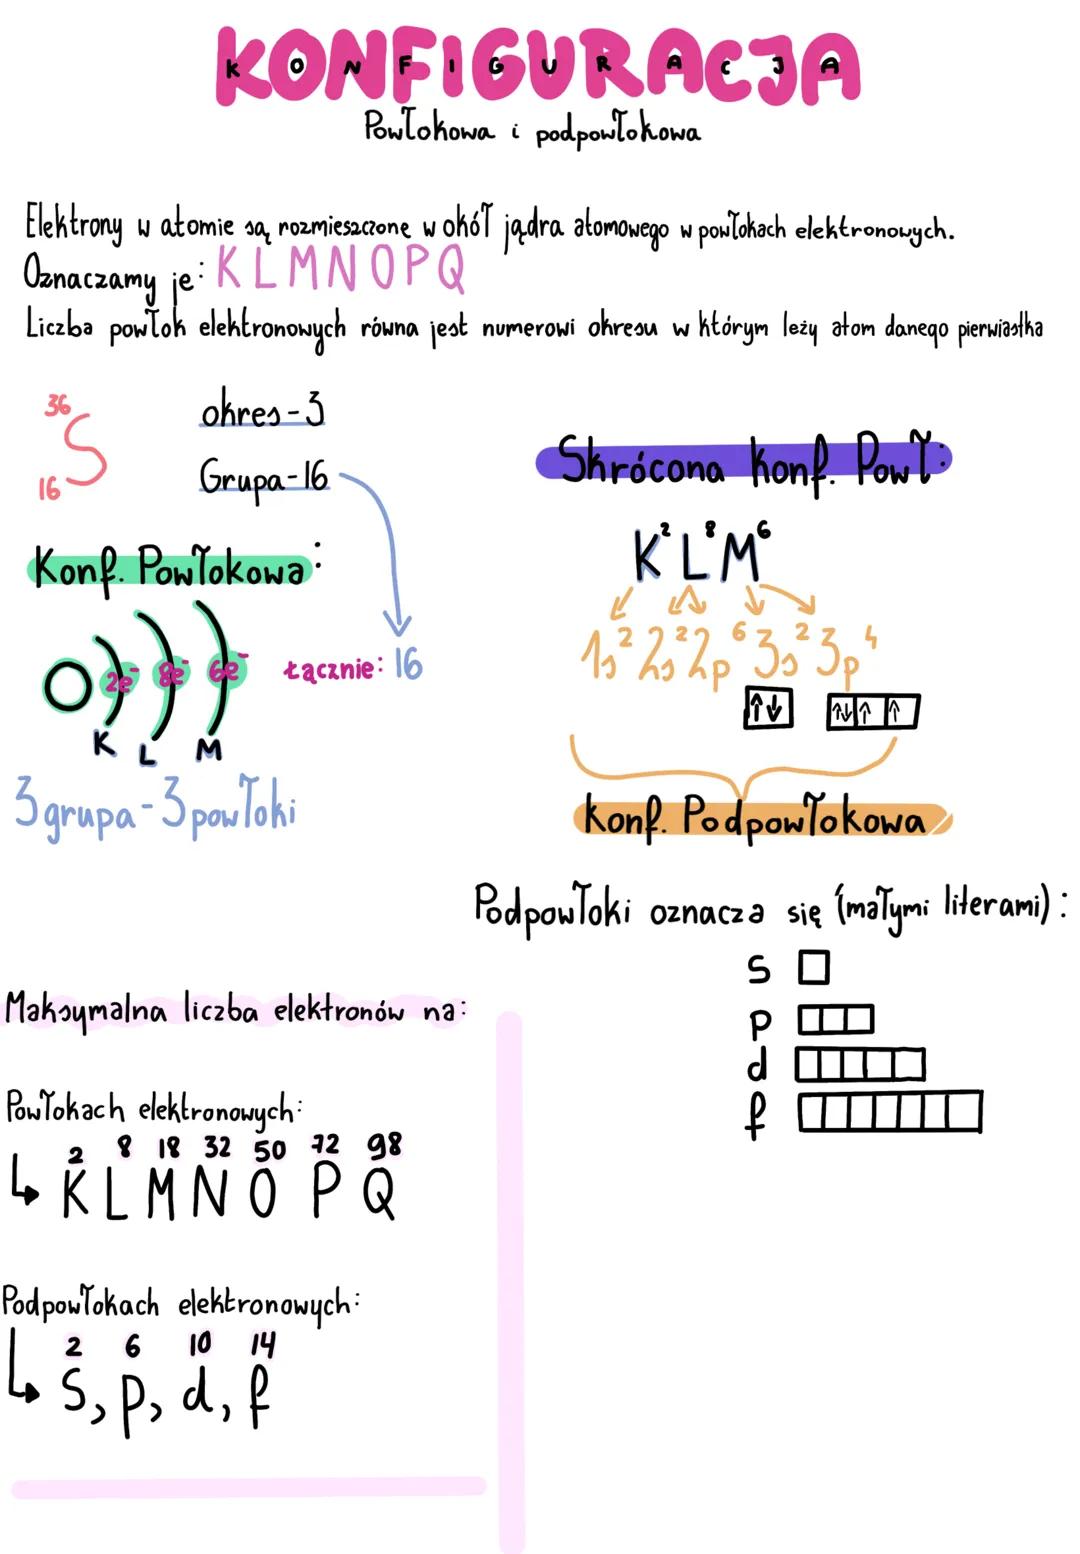 KONFIGURACJA
Powłokowa i podpowłokowa
Elektrony w atomie są rozmieszczone w okół jądra atomowego w powłokach elektronowych.
Oznaczamy je: K L M N O P Q
Liczba powłok elektronowych równa jest numerowi okresu w którym leży atom danego pierwiastka
36
S
16
okres-3
Grupa-16
Konf. Powłokowa:
2e⁻ 8e⁻ 6e⁻
K L M
Łącznie: 16
3 grupa - 3 powłoki
Skrócona konf. Pow Ł:
K² L⁸ M⁶
1s² 2s² 2p⁶ 3s² 3p⁴
↑↓ ↑↓ ↑ ↑
konf. Podpowłokowa
Podpowłoki oznacza się (małymi literami):
s
p
d
f
Maksymalna liczba elektronów na:
Powłokach elektronowych:
2 8 18 32 50 72 98
↳ K L M N O P Q
Podpowłokach elektronowych:
2 6 10 14
↳ s, p, d, f